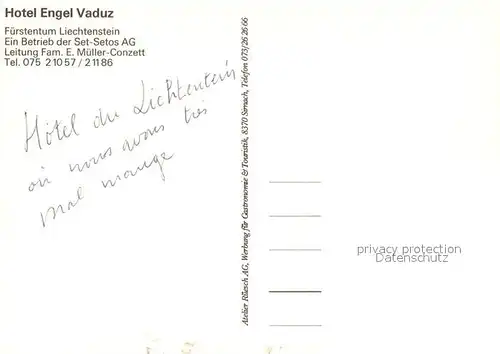 Hotel Engel Vaduz
Fürstentum Liechtenstein
Ein Betrieb der Set-Setos AG
Leitung Fam. E. Müller-Conzett
Tel. 075 21057 / 21186
Hôtel du Lichtentein
où nous avons très
mal mangé
Atelier Rüesch AG, Werbung für Gastronomie & Touristik, 8370 Sirnach, Telefon 073/26 26 66
privacy protection
Dakonstanz.com